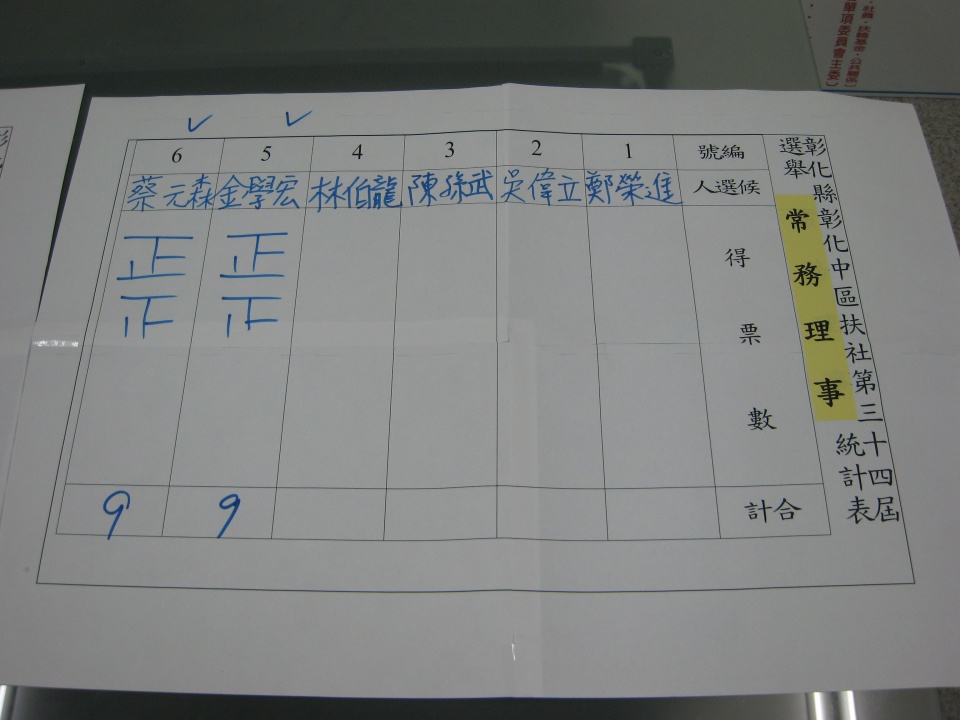 彰化縣彰化中區扶社第三十四屆
選舉常務理事統計表
編號 1 2 3 4 5 6
候選人 鄭榮進 吳偉立 陳孫武 林伯龍 金學宏 蔡元森
得票數 正正 正正
合計 9 9